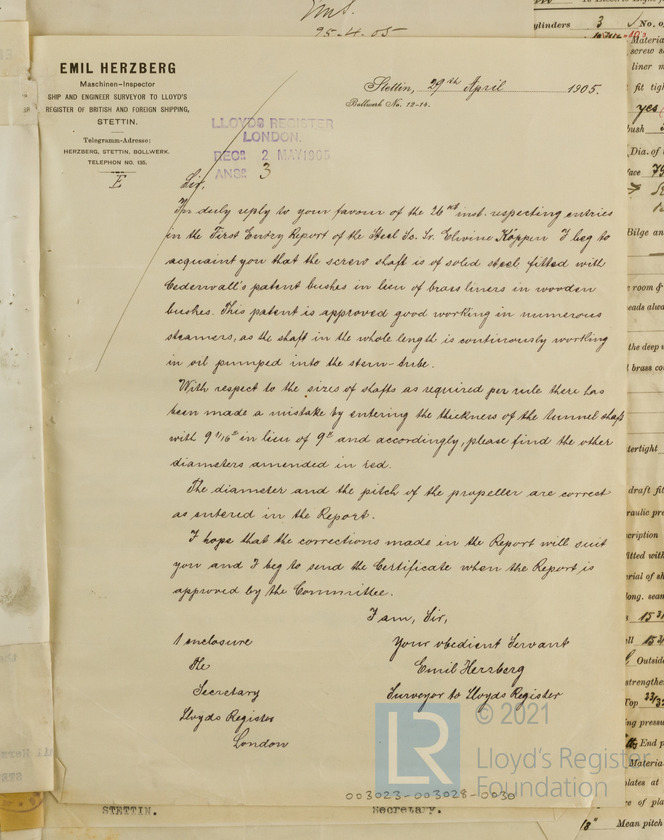 Emb.
95-4.05
EMIL HERZBERG
Maschinen-Inspector
SHIP AND ENGINEER SURVEYOR TO LLOYD'S
REGISTER OF BRITISH AND FOREIGN SHIPPING,
STETTIN.
Telegramm-Adresse:
HERZBERG, STETTIN, BOLLWERK.
TELEPHON NO. 135.
E
Stettin, 29th April 1905.
Bollwerk No. 12-14.
LLOYDS REGISTER
LONDON.
RECD. 2 MAY 1905
ANSD. 3
Sir,
In duly reply to your favour of the 26nd inst. respecting entries
in the First Entry Report of the Steel Sc. Sr. Elwine Köppen I beg to
acquaint you that the screw shaft is of solid steel fitted with
Cederwall's patent bushes in lieu of brass liners in wooden
bushes. This patent is approved good working in numerous
steamers, as the shaft in the whole length is continuously working
in oil pumped into the stern-tube.
With respect to the sizes of shafts as required per rule there has
been made a mistake by entering the thickness of the tunnel shaft
with 9 1/16" in lieu of 9" and accordingly, please find the other
diameters amended in red.
The diameter and the pitch of the propeller are correct
as entered in the Report.
I hope that the corrections made in the Report will suit
you and I beg to send the Certificate when the Report is
approved by the Committee.
I am, Sir,
1 enclosure
Your obedient Servant
The
Emil Herzberg
Secretary
Surveyor to Lloyds Register
Lloyds Register
London
© 2021
LR
Lloyd's Register
Foundation
003023-003028-0030
STETTIN.
Secretary.
ylinders 3 No. o
Materia
screw s
liner m
fit tig
yes
bush
Dia. of
face 75
Bilge an
room f
eads alwa
the deep
brass co
tertight
draft fit
raulic pre
cription
fitted with
rial of sh
long. seam
ll 15
Outside
strengthe
Top 23/32
ng pressu
End p
Materia
plates at
re of pla
18" Mean pitch